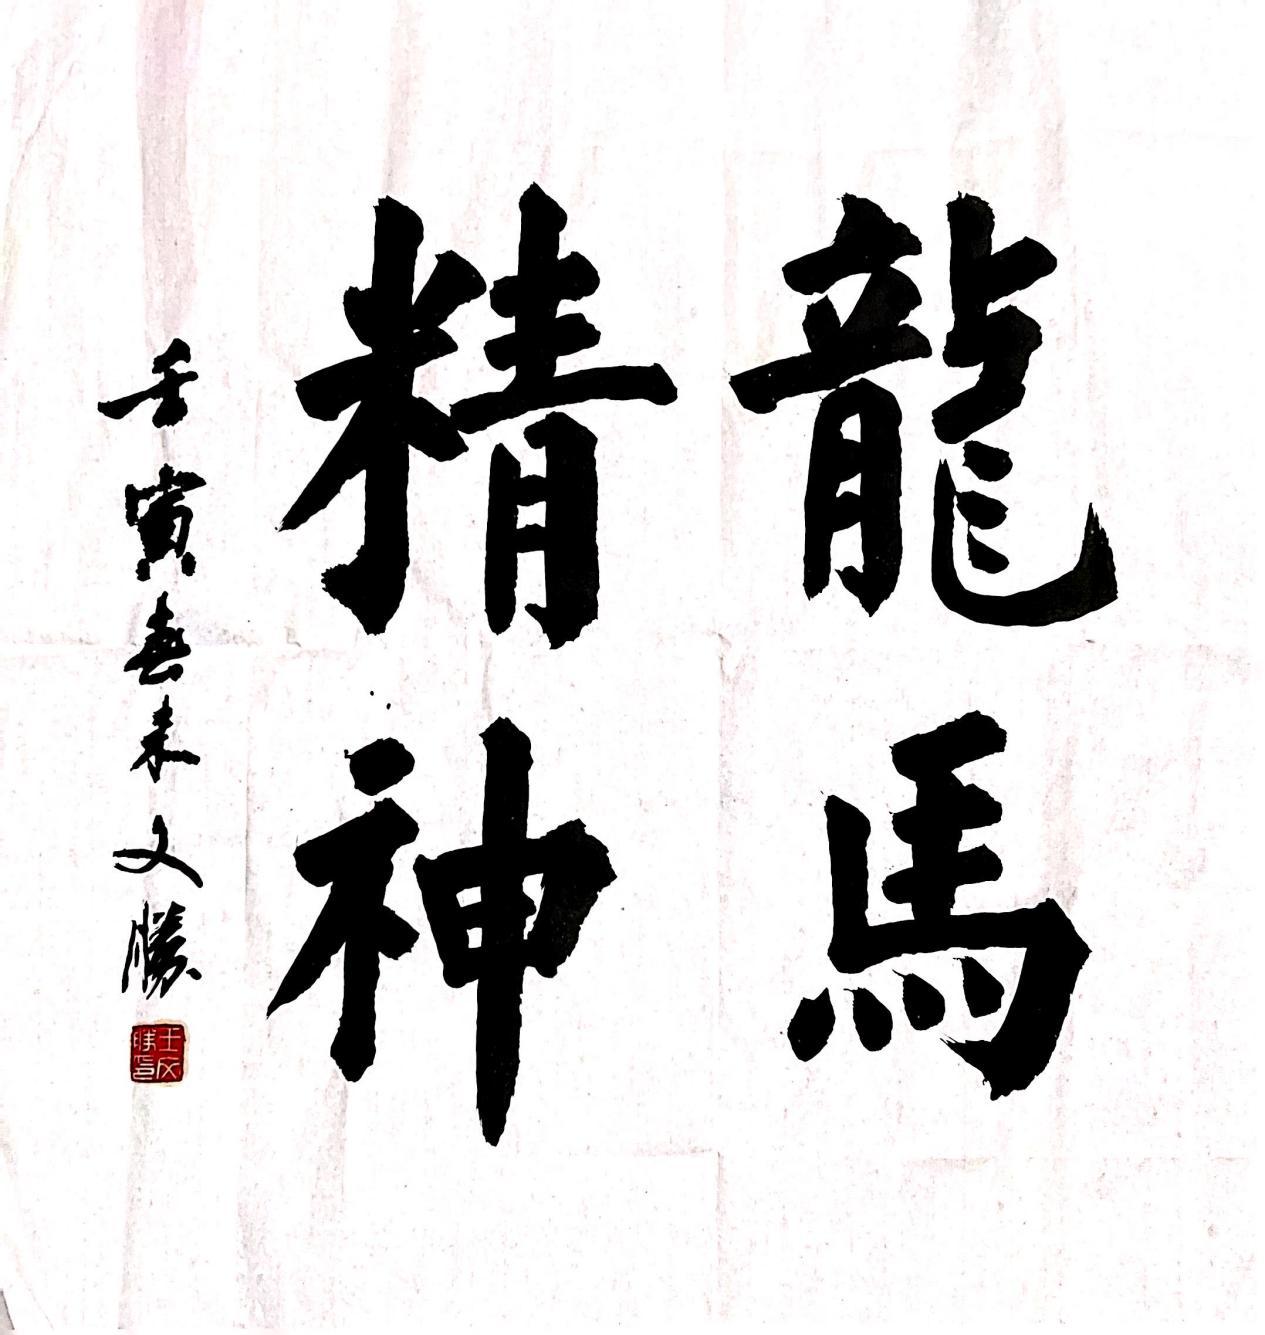 龍馬
精神
壬寅春末文勝
王文勝印